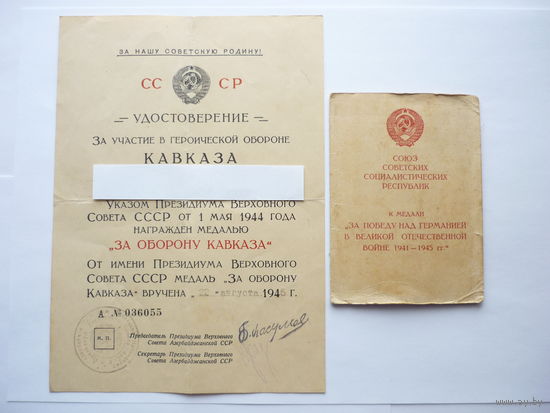 ЗА НАШУ СОВЕТСКУЮ РОДИНУ!
СС СР
УДОСТОВЕРЕНИЕ
ЗА УЧАСТИЕ В ГЕРОИЧЕСКОЙ ОБОРОНЕ
КАВКАЗА
УКАЗОМ ПРЕЗИДИУМА ВЕРХОВНОГО
СОВЕТА СССР ОТ 1 МАЯ 1944 ГОДА
НАГРАЖДЕН МЕДАЛЬЮ
„ЗА ОБОРОНУ КАВКАЗА“
ОТ ИМЕНИ ПРЕЗИДИУМА ВЕРХОВНОГО
СОВЕТА СССР МЕДАЛЬ „ЗА ОБОРОНУ
КАВКАЗА“ ВРУЧЕНА „ “ августа 1945 г.
А № 036055
М. П.
Председатель Президиума Верховного
Совета Азербайджанской ССР
Секретарь Президиума Верховного
Совета Азербайджанской ССР
СОЮЗ
СОВЕТСКИХ
СОЦИАЛИСТИЧЕСКИХ
РЕСПУБЛИК
К МЕДАЛИ
„ЗА ПОБЕДУ НАД ГЕРМАНИЕЙ
В ВЕЛИКОЙ ОТЕЧЕСТВЕННОЙ
ВОЙНЕ 1941—1945 гг.“
ay.by